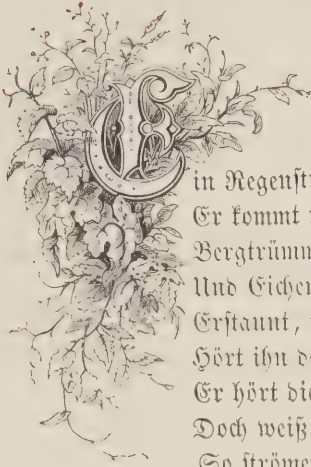 Ein Regenſtr
Er kommt
Bergtrümm
Und Eichen
Erſtaunt,
Hört ihn de
Er hört die
Doch weiß
So ſtrömen